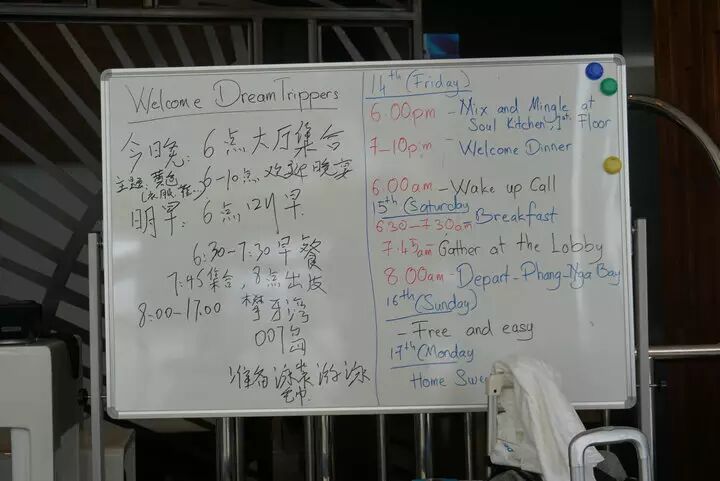 Welcome DreamTrippers
今日晚: 6点大厅集合
主题: 黄色 6-10点 欢迎晚宴
明早: 6点 叫早
6:30-7:30 早餐
7:45集合, 8点出发
8:00-17.00 攀牙湾
007岛
准备泳装游泳
毛巾
14th (Friday)
6.00pm - Mix and Mingle at
Soul Kitchen, 1st Floor
7-10pm - Welcome Dinner
6.00am - Wake up Call
15th (Saturday
6.30-7.30am Breakfast
7.45am Gather at the Lobby
8.00am - Depart - Phang-Nga Bay
16th (Sunday)
- Free and easy
17th (Monday
Home